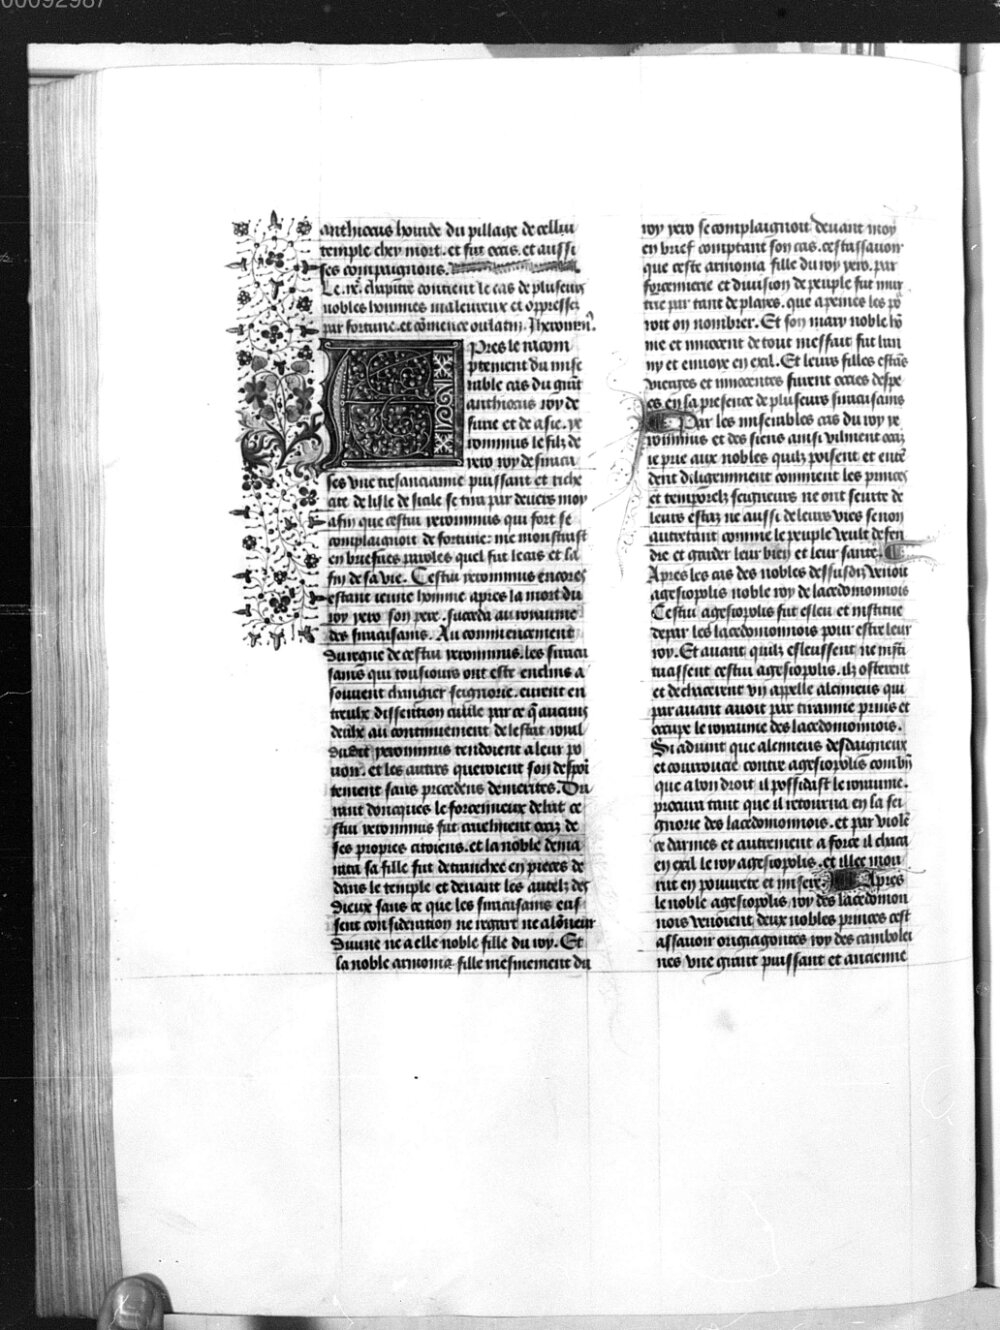 00092987
anthiocus houide du pillage de cellui
temple chey mort. et fut occis. et aussi
ses compaignons.
Le .xx. chapitre contient le cas de pluseurs
nobles hommes maleureux et oppressez
par fortune. et cōmence ou latin. Iheronim9.
APres le racom
ptement du mise
rable cas du grāt
anthiocus roy de
surie et de asie. je
ronimus le filz de
jero roy de siracu
ses vne tresancienne puissant et riche
cite de lisle de sicile se tira par deuers moy
afin que cestui jeronimus qui fort se
complaignoit de fortune: me monstrast
en briefues paroles quel fut le cas et la
fin de sa vie. Cestui jeronimus encores
estant ieune homme apres la mort du
roy jero son pere. succeda au royaume
des siracusains. Au commencement
du regne de cestui jeronimus. les siracu
sains qui tousiours ont este enclins a
souuent changier seignorie. eurent en
treulx dissention ciuile par ce q̄ aucuns
deulx au contiennement de lestat royal
dudit jeronimus tendoient a leur po
uoir. et les autres queroient son despoi
tement sans precedens demerites. Du
rant doncques le forcenneux debat ce
stui jeronimus fut cruelment occiz de
ses propres citoiens. et la noble dema
rata sa fille fut detranchee en pieces de
dans le temple et deuant les autelz des
dieux sans ce que les siracusains eus
sent consideration ne regart ne alōneur
diuine ne a elle noble fille du roy. Et
la noble armonia fille mesmement du
roy jero se complaignoit deuant moy
en brief comptant son cas. cestassauoir
que ceste armonia fille du roy jero. par
forcennerie et diuision de peuple fut mur
trie par tant de playes. que a peines les po
roit on nombrer. Et son mary noble hō
me et innocent de tout meffait fut ban
ny et enuoye en exil. Et leurs filles estās
vierges et innocentes furent occies despe
es en la presence de pluseurs siracusains
Par les miserables cas du roy je
ronimus et des siens ainsi vilment occiz
ie prie aux nobles quilz poisent et entē
dent diligemment comment les princes
et temporelz seigneurs ne ont seurte de
leurs estaz ne aussi de leurs vies se non
autretant comme le peuple veult defen
dre et garder leur bien et leur sante.
Apres les cas des nobles dessusdiz venoit
agesiopolis noble roy de lacedomonnois
Cestui agesiopolis fut esleu et institue
depar les lacedomonnois pour estre leur
roy. Et auant quilz esleussent ne insti
tuassent cestui agesiopolis. ilz osterent
et dechacerent vn appelle alcineus qui
par auant auoit par tirannie prins et
occupe le royaume des lacedomonnois.
Si aduint que alcineus desdaigneux
et courroucie contre agesiopolis combiē
que a bon droit il possidast le royaume.
procura tant que il retourna en la sei
gnorie des lacedomonnois. et par violē
ce darmes et autrement a force il chaca
en exil le roy agesiopolis. et illec mou
rut en pouurete et misere. Apres
le noble agesiopolis roy des lacedomon
nois venoient deux nobles princes cest
assauoir origiagontes roy des cambolei
nes vne grant puissant et ancienne